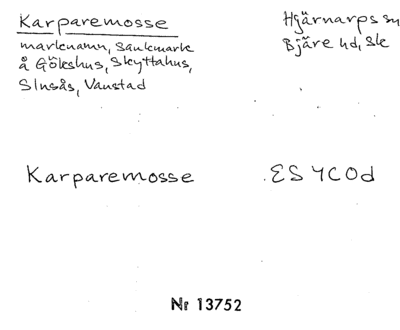 Karparemosse
Hjärnarps sn
marknamn, sankmark
Bjäre hd, Sk
å Gökshus, Skyttahus,
Slusås, Vanstad
Karparemosse
ES4C0d
Nr 13752